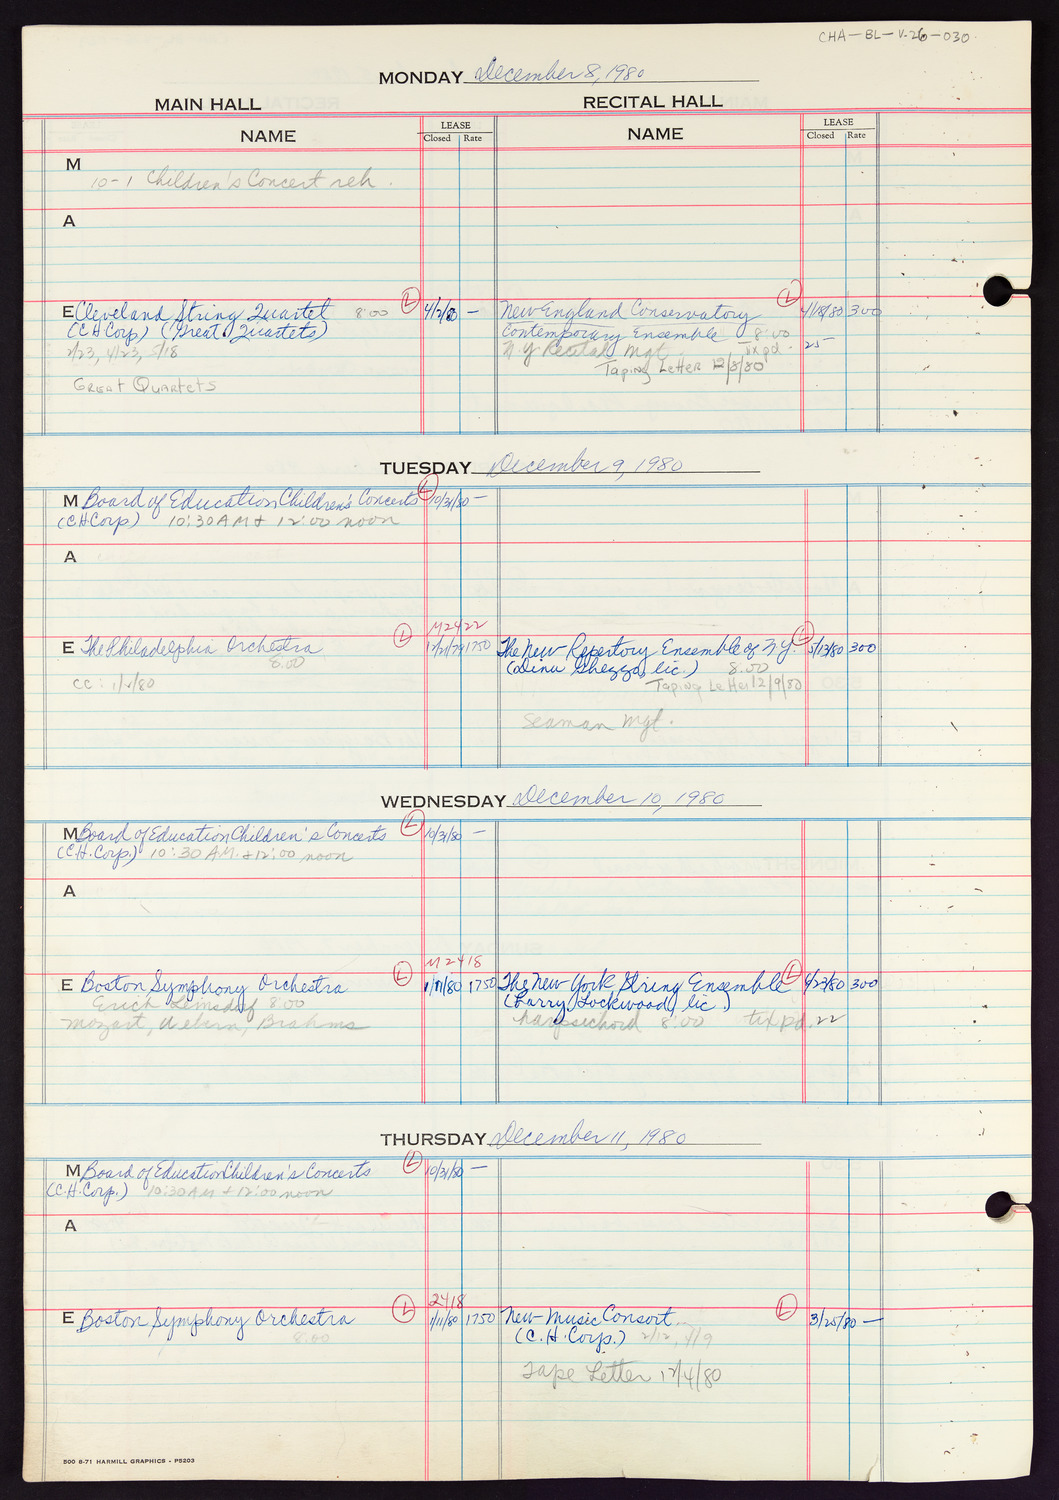 CHA-BL-V.26-030
MONDAY December 8, 1980
MAIN HALL
RECITAL HALL
NAME
LEASE
Closed Rate
NAME
LEASE
Closed Rate
M
10-1 Children's Concert reh.
A
E Cleveland String Quartet 8:00 L 4/2/80 —
(C.H. Corp) (Great Quartets)
2/23, 4/23, 5/18
Great Quartets
New England Conservatory L 4/18/80 300
Contemporary Ensemble 8:00
N.Y. Recital Mgt. tix pd. 25—
Taping Letter 12/8/80
TUESDAY December 9, 1980
M Board of Education Children's Concerts L 10/31/80 —
(C.H. Corp) 10:30 AM + 12:00 noon
A
M2422
E The Philadelphia Orchestra L 12/21/79 1750
8:00
CC: 1/2/80
The New Repertory Ensemble of N.Y. L 5/13/80 300
(Dinu Ghezzo, lic.) 8:00
Taping Letter 12/9/80
Seaman Mgt.
WEDNESDAY December 10, 1980
M Board of Education Children's Concerts L 10/31/80 —
(C.H. Corp.) 10:30 A.M. + 12:00 noon
A
M2418
E Boston Symphony Orchestra L 1/11/80 1750
Erich Leinsdorf 8:00
Mozart, Webern, Brahms
The New York String Ensemble L 4/23/80 300
(Larry Lockwood, lic.)
harpsichord 8:00 tix pd. 22
THURSDAY December 11, 1980
M Board of Education Children's Concerts L 10/31/80 —
(C.H. Corp.) 10:30 AM + 12:00 noon
A
2418
E Boston Symphony Orchestra L 1/11/80 1750
8:00
New Music Consort L 3/25/80 —
(C.H. Corp.) 2/12, 4/9
Tape Letter 12/4/80
500 8-71 HARMILL GRAPHICS - P5203